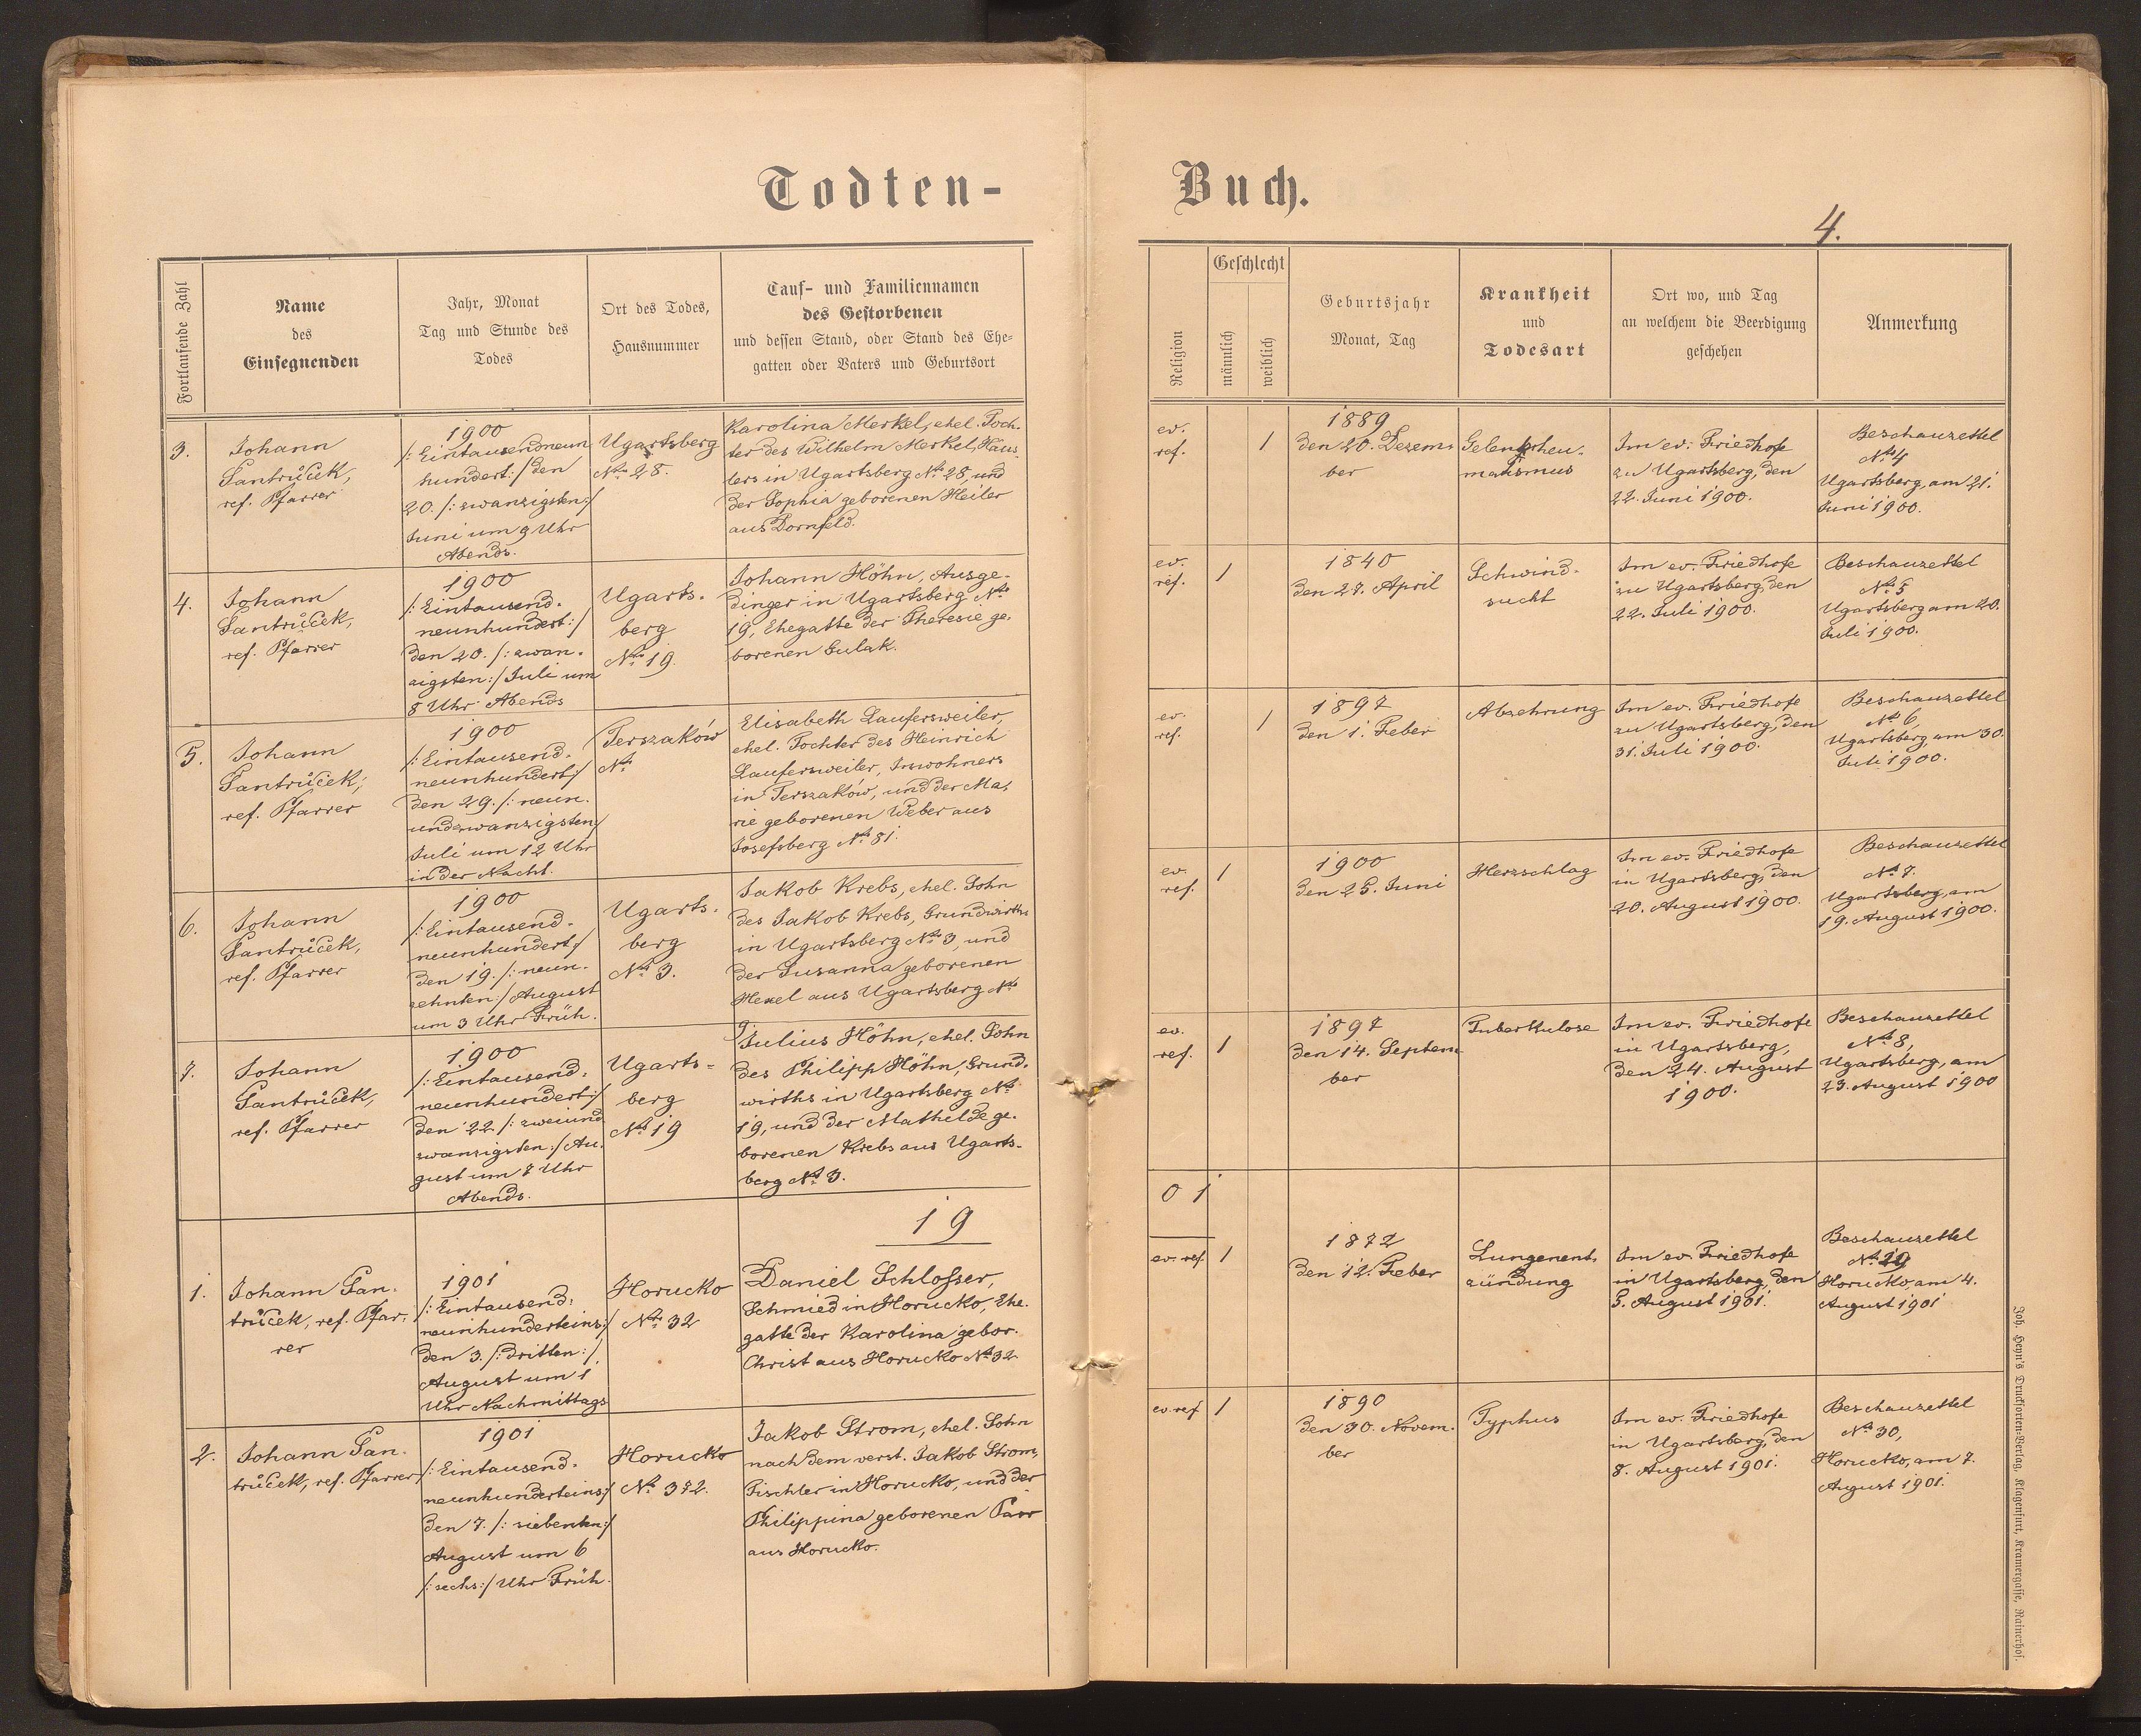 Todten-
Buch.
4.
Fortlaufende Zahl
Name
des
Einsegnenden
Jahr, Monat
Tag und Stunde des
Todes
Ort des Todes,
Hausnummer
Tauf- und Familiennamen
des Gestorbenen
und dessen Stand, oder Stand des Ehe-
gatten oder Vaters und Geburtsort
Religion
Geschlecht
männlich
weiblich
Geburtsjahr
Monat, Tag
Krankheit
und
Todesart
Ort wo, und Tag
an welchem die Beerdigung
geschehen
Anmerkung
3.
Johann
Santrůček,
ref. Pfarrer
1900
/: Eintausendneun
hundert:/ den
20. /: zwanzigsten:/
Juni um 9 Uhr
Abends.
Ugartsberg
No 28.
Karolina Merkel, ehel. Toch-
ter des Wilhelm Merkel, Häus-
lers in Ugartsberg No 28, und
der Sophia geborenen Heiler
aus Dornfeld.
ev.
ref.
1
1889
den 20. Dezem-
ber
Gelenkrheu-
matismus
Im ev. Friedhofe
zu Ugartsberg, den
22. Juni 1900.
Beschauzettel
No 4
Ugartsberg, am 21.
Juni 1900.
4.
Johann
Santrůček,
ref. Pfarrer
1900
/: Eintausend-
neunhundert:/
den 20. /: zwan-
zigsten:/ Juli um
8 Uhr Abends
Ugarts-
berg
No 19.
Johann Höhn, Ausge-
dinger in Ugartsberg No
19, Ehegatte der Theresie ge-
borenen Gulak.
ev.
ref.
1
1840
den 27. April
Schwind-
sucht
Im ev. Friedhofe
zu Ugartsberg, den
22. Juli 1900.
Beschauzettel
No 5
Ugartsberg am 20.
Juli 1900.
5.
Johann
Santrůček,
ref. Pfarrer
1900
/: Eintausend-
neunhundert:/
den 29. /: neun-
undzwanzigsten:/
Juli um 12 Uhr
in der Nacht.
Terszaków
No
Elisabeth Laufersweiler,
ehel. Tochter des Heinrich
Laufersweiler, Inwohners
in Terszaków, und der Ma-
rie geborenen Weber aus
Josefsberg No 81.
ev.
ref.
1
1897
den 1. Feber
Abzehrung
Im ev. Friedhofe
zu Ugartsberg, den
31. Juli 1900.
Beschauzettel
No 6,
Ugartsberg, am 30.
Juli 1900.
6.
Johann
Santrůček,
ref. Pfarrer
1900
/: Eintausend-
neunhundert:/
den 19. /: neun-
zehnten:/ August
um 3 Uhr Früh.
Ugarts-
berg
No 3.
Jakob Krebs, ehel. Sohn
des Jakob Krebs, Grundwirths
in Ugartsberg No 3, und
der Susanna geborenen
Hexel aus Ugartsberg No
9.
ev.
ref.
1
1900
den 25. Juni
Herzschlag
Im ev. Friedhofe
in Ugartsberg, den
20. August 1900.
Beschauzettel
No 7.
Ugartsberg, am
19. August 1900.
7.
Johann
Santrůček,
ref. Pfarrer
1900
/: Eintausend-
neunhundert:/
den 22. /: zweiund
zwanzigsten:/ Au-
gust um 7 Uhr
Abends.
Ugarts-
berg
No 19
Julius Höhn, ehel. Sohn
des Philipp Höhn, Grund-
wirths in Ugartsberg No
19, und der Mathelde ge-
borenen Krebs aus Ugarts-
berg No 3.
ev.
ref.
1
1897
den 14. Septem-
ber
Tuberkulose
Im ev. Friedhofe
in Ugartsberg,
den 24. August
1900.
Beschauzettel
No 8,
Ugartsberg, am
23. August 1900
19
01
1.
Johann San-
trůček, ref. Pfar-
rer
1901
/: Eintausend-
neunhunderteins:/
den 3. /: dritten:/
August um 1
Uhr Nachmittags
Horucko
No 32
Daniel Schlosser,
Schmied in Horucko, Ehe-
gatte der Karolina gebor.
Christ aus Horucko No 32
ev. ref.
1
1872
den 12. Feber
Lungenent-
zündung
Im ev. Friedhofe
in Ugartsberg, den
5. August 1901.
Beschauzettel
Horucko, am 4.
August 1901
2.
Johann San-
trůček, ref. Pfarrer
1901
/: Eintausend-
neunhunderteins:/
den 7. /: siebenten:/
August um 6
/: sechs:/ Uhr Früh.
Horucko
No 372.
Jakob Strom, ehel. Sohn
nach dem verst. Jakob Strom,
Tischler in Horucko, und der
Philippina geborenen
aus Horucko.
ev. ref.
1
1890
den 30. Novem-
ber
Typhus
Im ev. Friedhofe
in Ugartsberg, den
8. August 1901.
Beschauzettel
No 30,
Horucko, am 7.
August 1901.
Joh. Heyn's Drucksorten-Verlag, Klagenfurt, Kramergasse, Rainerhof.